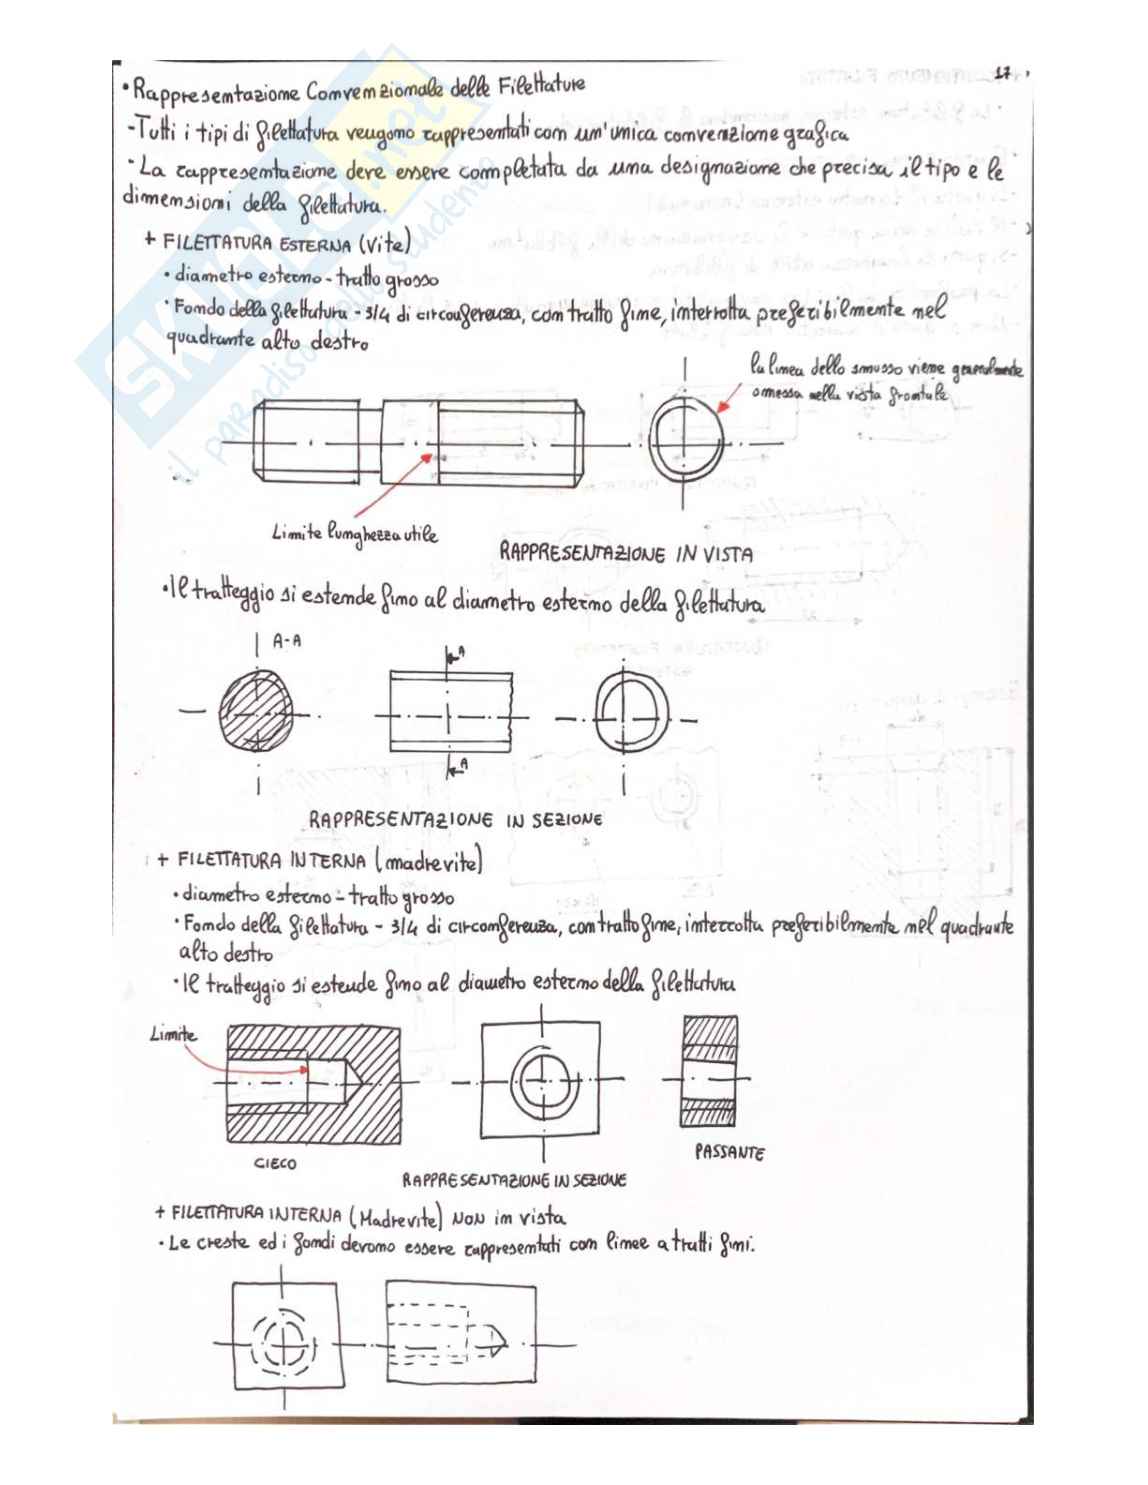 17
• Rappresentazione Convenzionale delle Filettature
- Tutti i tipi di filettatura vengono rappresentati con un'unica convenzione grafica
- La rappresentazione deve essere completata da una designazione che precisa il tipo e le
dimensioni della filettatura.
+ FILETTATURA ESTERNA (Vite)
• diametro esterno - tratto grosso
• Fondo della filettatura - 3/4 di circonferenza, con tratto fine, interrotta preferibilmente nel
quadrante alto destro
la linea dello smusso viene generalmente
omessa nella vista frontale
Limite lunghezza utile
RAPPRESENTAZIONE IN VISTA
• Il tratteggio si estende fino al diametro esterno della filettatura
A-A
A
A
RAPPRESENTAZIONE IN SEZIONE
+ FILETTATURA INTERNA (madrevite)
• diametro esterno - tratto grosso
• Fondo della filettatura - 3/4 di circonferenza, con tratto fine, interrotta preferibilmente nel quadrante
alto destro
• Il tratteggio si estende fino al diametro esterno della filettatura
Limite
CIECO
RAPPRESENTAZIONE IN SEZIONE
PASSANTE
+ FILETTATURA INTERNA (Madrevite) NON in vista
• Le creste ed i fondi devono essere rappresentati con linee a tratti fini.
SKUOLA.net
il paradiso dello studente